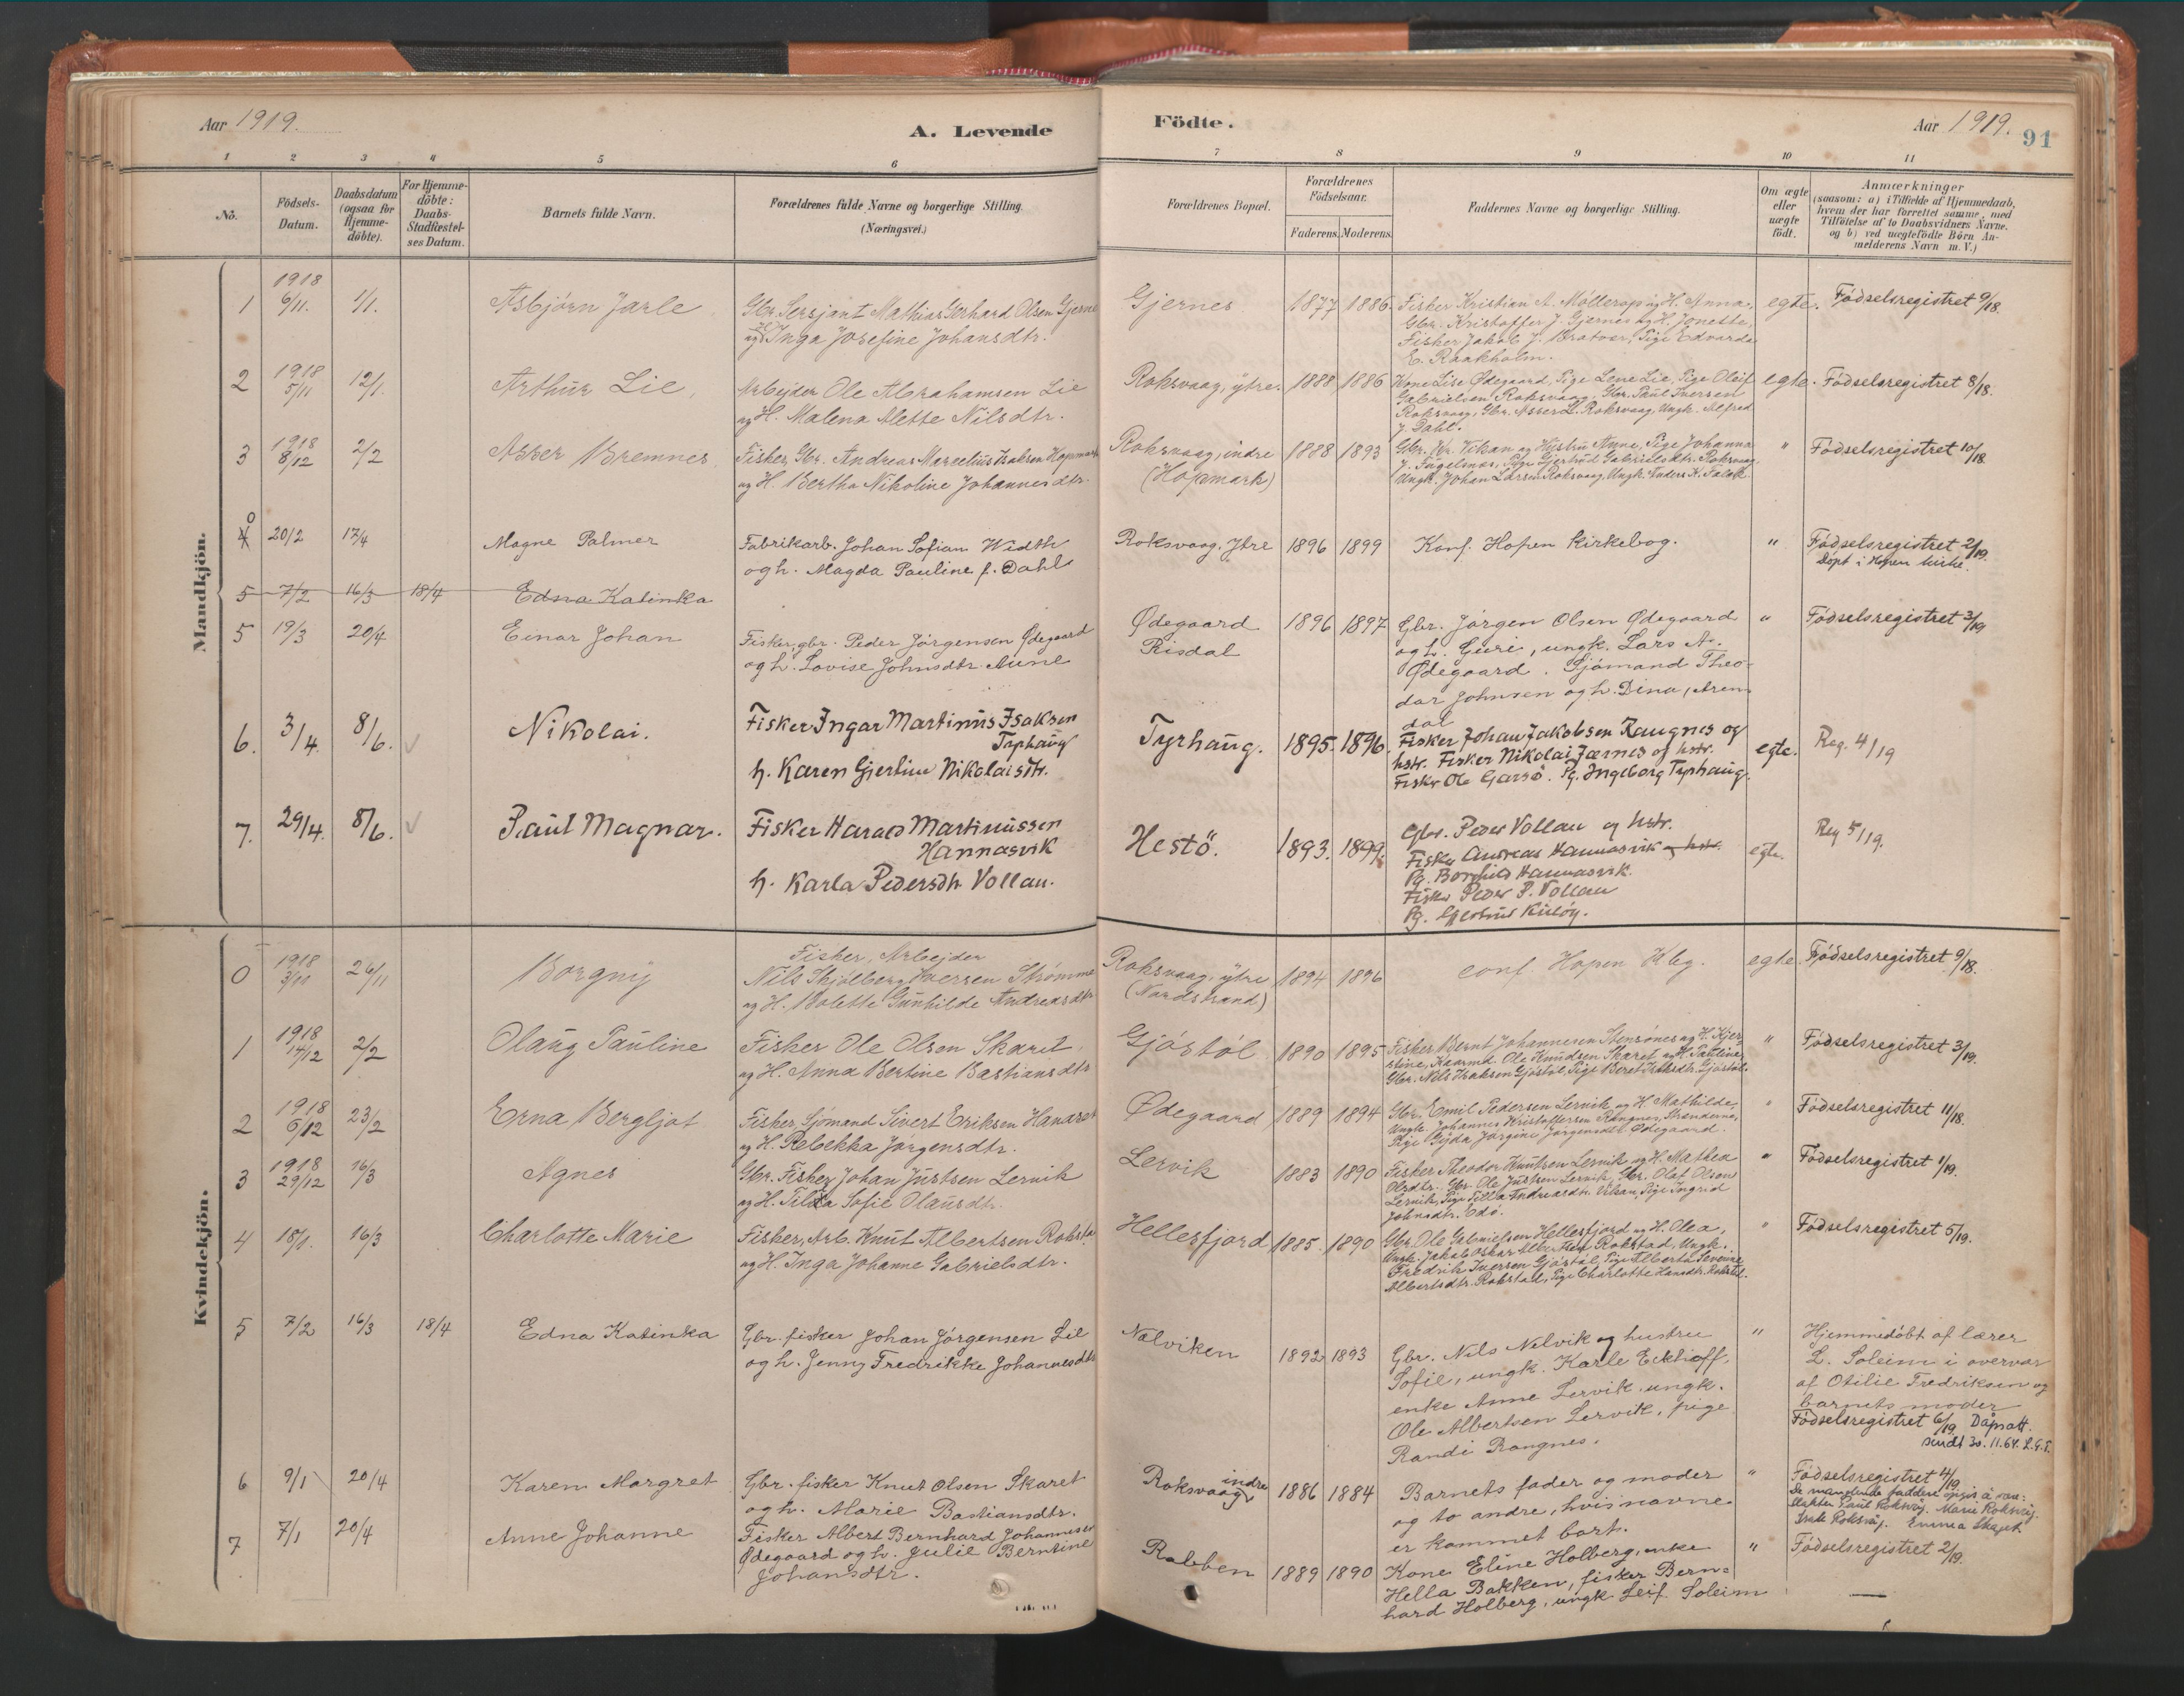 Aar 1919.
A. Levende
Födte.
Aar 1919.
91
1 2 3 4 5 6 7 8 9 10 11
Nö.
Födsels-Datum.
Daabsdatum (ogsaa for Hjemme-döbte).
For Hjemme-döbte: Daabs-Stadfæstel-ses Datum.
Barnets fulde Navn.
Forældrenes fulde Navne og borgerlige Stilling.
(Næringsvei.)
Forældrenes Bopæl.
Forældrenes Födselsaar.
Faderens. Moderens.
Faddernes Navne og borgerlige Stilling.
Om ægte eller uægte födt.
Anmærkninger
(saasom: a) i Tilfælde af Hjemmedaab,
hvem der har forrettet samme, med
Tilföielse af to Daabsvidners Navne.
og b) ved uægtefödte Börn An-
melderens Navn m. V.)
Mandkjön.
1 1918 6/11. 1/1. Asbjörn Jarle
Gbr. Sersjant Mathias Gerhard Olsen Gjerne
og H. Inga Josefine Johansdtr.
Gjernes 1877 1886
Fisker Kristian A. Möllerop og H. Anna,
Gbr. Kristoffer J. Gjernes og H. Jonette,
Fisker Jakob J. Bratvær, Pige Edvarda
E. Raakholm.
egte. Födselsregistret 9/18.
2 1918 5/11 12/1. Arthur Lie,
Arbejder Ole Abrahamsen Lie
og H. Malena Alette Nilsdtr.
Roksvaag, ytre. 1888 1886
Kone Lise Ødegaard, Pige Lene Lie, Pige Oleif
Gabrielsen Roksvaag, Gbr. Paul Iversen
Roksvaag, Gbr. Asser L. Roksvaag, Ungk. Alfred
J. Dahl.
egte. Födselsregistret 8/18.
3 1918 8/12 2/2 Asser Bremnes
Fisker, Gbr. Andreas Marcelius Isaksen Hopmark
og H. Bertha Nikoline Johannesdtr.
Roksvaag, indre
(Hopmark)
1888 1893
Gbr. Kr. Vikan og Hustru Anne, Pige Johanna
J. Engelsnes, Pige Gjertrud Gabrielsdtr. Roksvaag
Ungk. Johan Larsen Roksvaag, Ungk. Anders K.
" Födselsregistret 10/18
0 4 20/2 17/4 Magne Palmer
Fabrikarb. Johan Sofian Width
og h. Magda Pauline f. Dahl
Roksvaag, Ytre 1896 1899
Konf. Hopen Kirkebog.
" Födselsregistret 2/19
Döpt i Hopen kirke.
5 7/2 16/3 18/4 Edna Katinka
5 19/3 20/4 Einar Johan
Fisker, gbr. Peder Jörgensen Ødegaard
og h. Lovise Johnsdtr. Aune
Ødegaard
Risdal
1896 1897
Gbr. Jörgen Olsen Ødegaard
og h. Guri, ungk. Lars A.
Ødegaard. Sjömand Theo-
dor Johnsen og h. Dina, Aren-
dal
" Födselsregistret 3/19
6. 3/4. 8/6. Nikolai.
Fisker Ingar Martinus Isaksen
Tyrhaug
h. Karen Gjertine Nikolaisdtr.
Tyrhaug. 1895. 1896.
Fisker Johan Jakobsen Raugnes og
hstr. Fisker Nikolai Jærnes og hstr.
Fisker Ole Garsö. Pg. Ingeborg Tyrhaug.
egte. Reg. 4/19
7. 29/4. 8/6. Paul Magnar.
Fisker Harald Martinussen
Hannasvik
h. Karla Pedersdtr Vollan.
Hestö. 1893. 1899.
Gbr. Peder Vollan og hstr.
Fisker Andreas Hannasvik og hstr.
Pg. Borghild Hannasvik.
Fisker Peder P. Vollan
Pg. Gjertrud Kulöy.
egte. Reg 5/19.
Kvindekjön.
0 1918 3/11 26/11 Borgny
Fisker, Arbejder
Nils Skjölberg Iversen Strömme
og H. Bolette Gunhilde Andreasdtr
Roksvaag, ytre
(Nordstrand)
1894 1896
conf. Hopen Kbg.
egte Födselsregistret 9/18.
1 1918 14/12 2/2 Olaug Pauline
Fisker Ole Olsen Skaret
og H. Anna Bertine Bastiansdtr
Gjöstöl 1890 1895
Fisker Bernt Johannesen Stensönes og H. Kjer-
stine, Kaarmd. Ole Knudsen Skaret og H. Pauline,
Gbr. Nils Isaksen Gjöstöl, Pige Beret Isaksdtr. Gjöstöl.
" Födselsregistret 3/19.
2 1918 6/12 23/2 Erna Bergljot
Fisker, Sjömand Sivert Eriksen Hanaset
og H. Rebekka Jörgensdtr.
Ødegaard 1889 1894
Gbr. Emil Pedersen Lervik og H. Mathilde,
Ungk. Johannes Kristoffersen
Pige Gyda Jörgine Jörgensdtr. Ødegaard.
" Födselsregistret 11/18.
3 1918 29/12 16/3 Agnes
Gbr. Fisker Johan Justsen Lervik
og H. Tilda Sofie Olausdtr.
Lervik 1883 1890
Fisker Theodor Knutsen Lervik og H. Mathea
Olsdtr., Gbr. Ole Justsen Lervik, Gbr. Olaf Olsen
Lervik, Pige Tilla Andreasdtr. Vikan, Pige Ingrid
Johnsdtr. Odö.
" Födselsregistret 1/19.
4 18/1. 16/3 Charlotte Marie
Fisker, Arb. Knut Albertsen Rokstad
og H. Inga Johanne Gabrielsdtr.
Hellesfjord 1885. 1890
Gbr. Ole Gabrielsen Hellesfjord og H. Olea,
Ungk. Jakob Oskar Albertsen Rokstad, Ungk.
Fredrik Iversen Gjöstöl, Pige Alberta Severine
Albertsdtr. Rokstad, Pige Charlotte Hansdtr. Rokstad.
" Födselsregistret 5/19.
5 7/2 16/3 18/4 Edna Katinka
Gbr. fisker Johan Jörgensen Lie
og h. Jenny Fredrikke Johannesdtr
Nelviken 1892 1893
Gbr. Nils Nelvik og hustru
Sofie, ungk. Karle Eckhoff,
enke Anne Lervik, ungk.
Ole Albertsen Lervik, pige
Randi Rangnes.
" Hjemmedöbt af lærer
L. Soleim i overvær
af Otilie Fredriksen og
barnets moder
Födselsregistret 6/19 Dåpsatt.
sendt 30.11.64. L.G.T.
6 9/1 20/4 Karen Margret
Gbr. fisker Knut Olsen Skaret
og h. Marie Bastiansdtr.
Roksvaag indre 1886 1884
Barnets fader og moder
og to andre, hvis navne
er kommet bort.
" Födselsregistret 4/19
De manglende faddere opgis å være:
Paul Roksvåg, Marie Roksvåg,
Roksvåg. Emma Skaget
7 7/1 20/4 Anne Johanne
Fisker Albert Bernhard Johannesen
Ødegaard og h. Julie Berntine
Johansdtr.
Rabben 1889 1890
Kone Eline Holberg, enke
Hella Bakken, fisker Bern-
hard Holberg, ungk. Leif Soleim
" Födselsregistret 2/19.